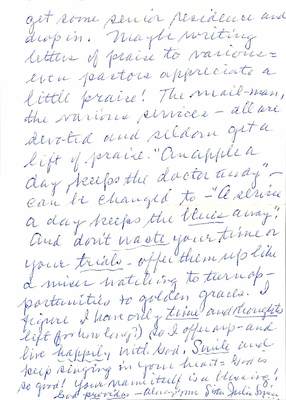 get some senior residence and
drop in. Maybe writing
letters of praise to various =
even pastors appreciate a
little praise! The mail-man,
the various services - all are
devoted and seldom get a
lift of praise. "An apple a
day keeps the doctor away" -
can be changed to - "A
a day keeps the blues away".
And don't waste your time or
your trials - offer them up like
a miser watching to turn op-
portunities to golden graces. I
figure I have only time and thoughts
left (for how long?) So I offer up - and
live happily with God. Smile and
keep singing in your heart = God is
so good! Your mom itself is a blessing!
God provides - Always